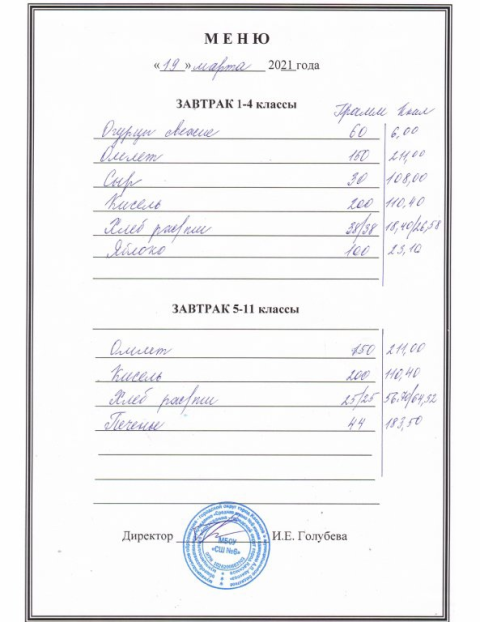 МЕНЮ
«19» марта 2021 года
ЗАВТРАК 1-4 классы
Грамм Ккал
Огурцы свежие 60 6,00
Омлет 150 211,00
Сыр 30 108,00
Кисель 200 110,40
Хлеб рж/пш 38/38 18,40/26,58
Яблоко 100 23,10
ЗАВТРАК 5-11 классы
Омлет 150 211,00
Кисель 200 110,40
Хлеб рж/пш 25/25 56.70/64,52
Печенье 44 183,50
Директор И.Е. Голубева
МБОУ
«СШ №6»